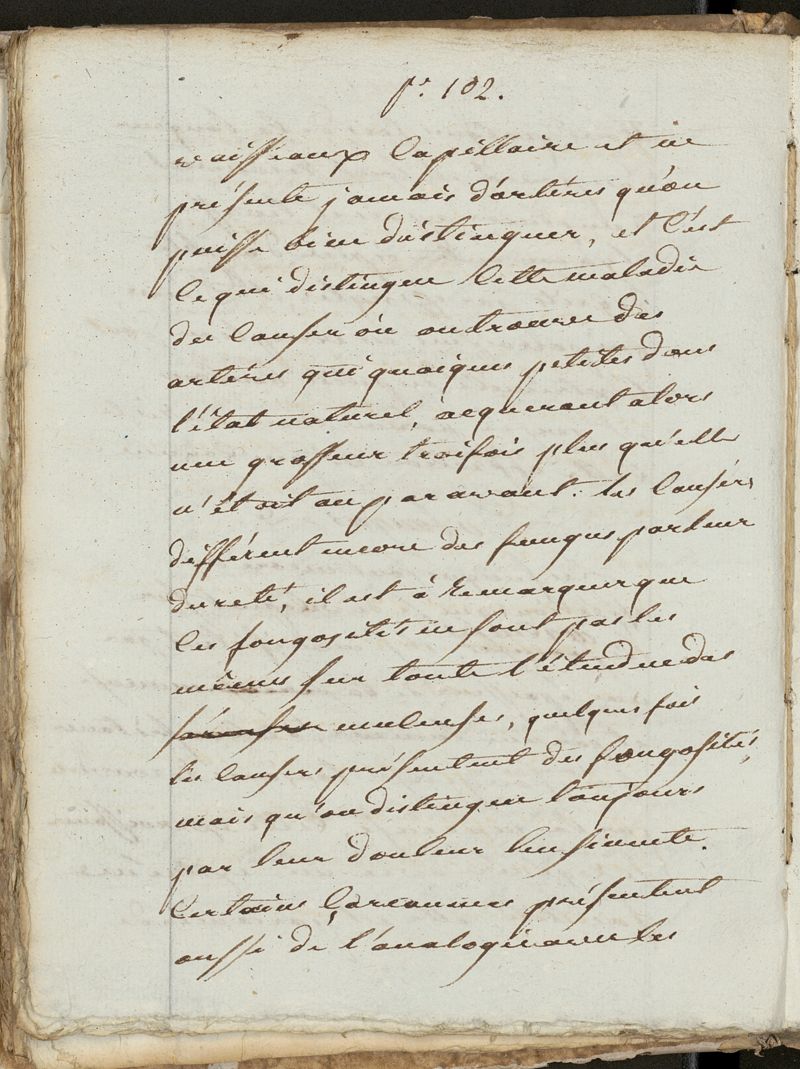 p.e 102.
vaisseaux Capillaire et ne
présente jamais d'artères qu'on
puisse bien distinguer, et C'est
Ce qui distingue Cette maladie
des Canser où on trouve des
artères qui quoiques petites dans
l'état naturel, acquerent alors
une grosseur troi fois plus qu'elle
n'étoit au paravant. les Cansérs
différent encore des fungus par leur
dureté, il est à remarquer que
les fongosités ne sont pas les
mêmes sur toute l'étendue des
séreuses muleuses, quelques fois
les Cansers présentent des fongosités,
mais qu'on distingue toujours
par leur douleur lensinente.
Certains Sarcaumes présentent
aussi de l'analogie avec les